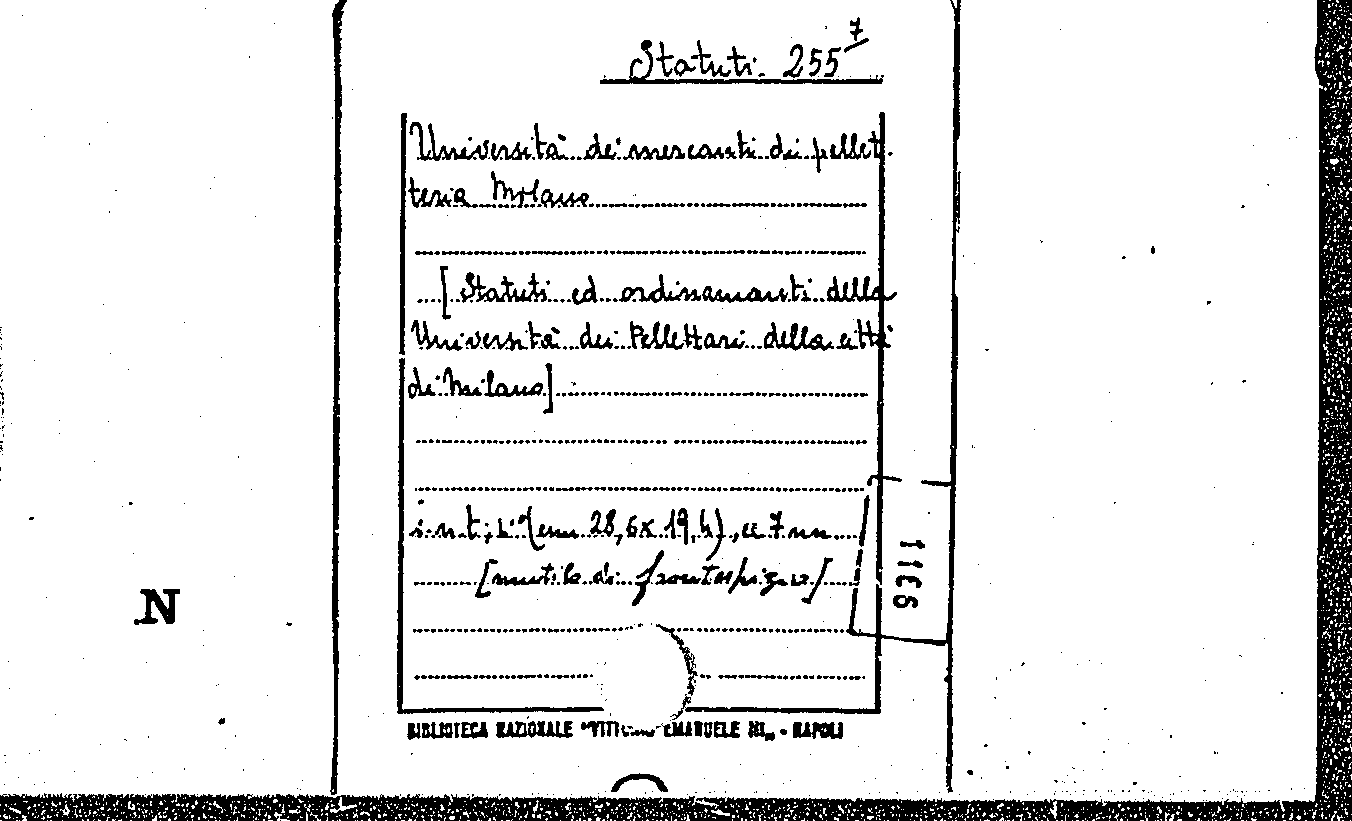 Statuti. 255 7
Università dei mercanti di pellet.
teria Milano
[Statuti ed ordinamanti della
Università dei Pellettari della città
di Milano]
s.n.t; (cm 28,6x 19,4), cc 7 nn
[mutilo di frontespizio]
N
BIBLIOTECA NAZIONALE "VITTORIO EMANUELE III" - NAPOLI